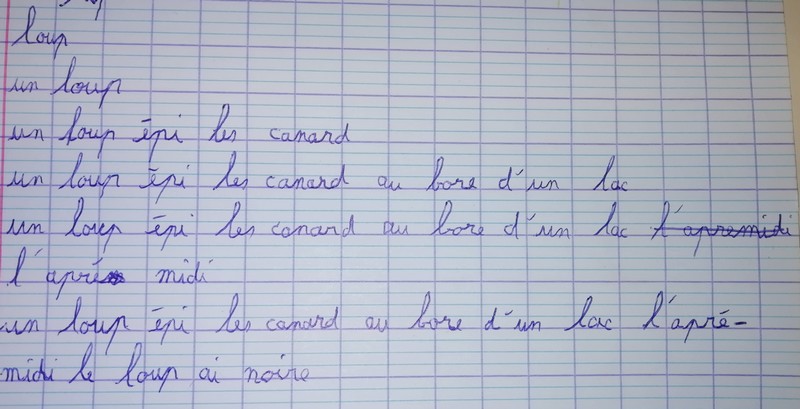 loup
un loup
un loup épi les canard
un loup épi les canard au bore d'un lac
un loup épi les canard au bore d'un lac l'apremidi
l'aprés midi
un loup épi les canard au bore d'un lac l'apré-
midi le loup ai noire